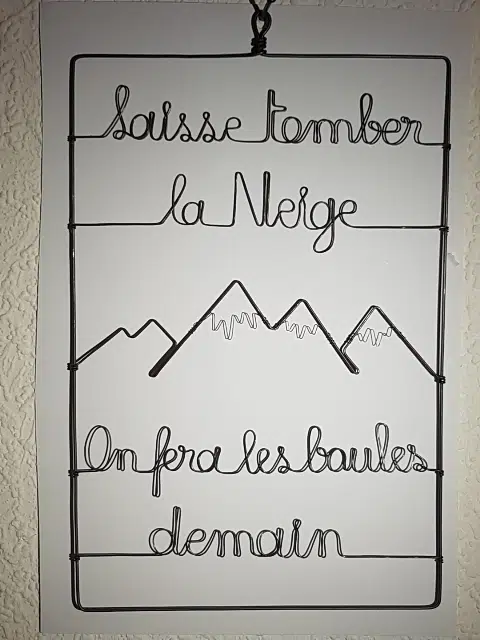 Laisse tomber
la Neige
On fera les baules
demain